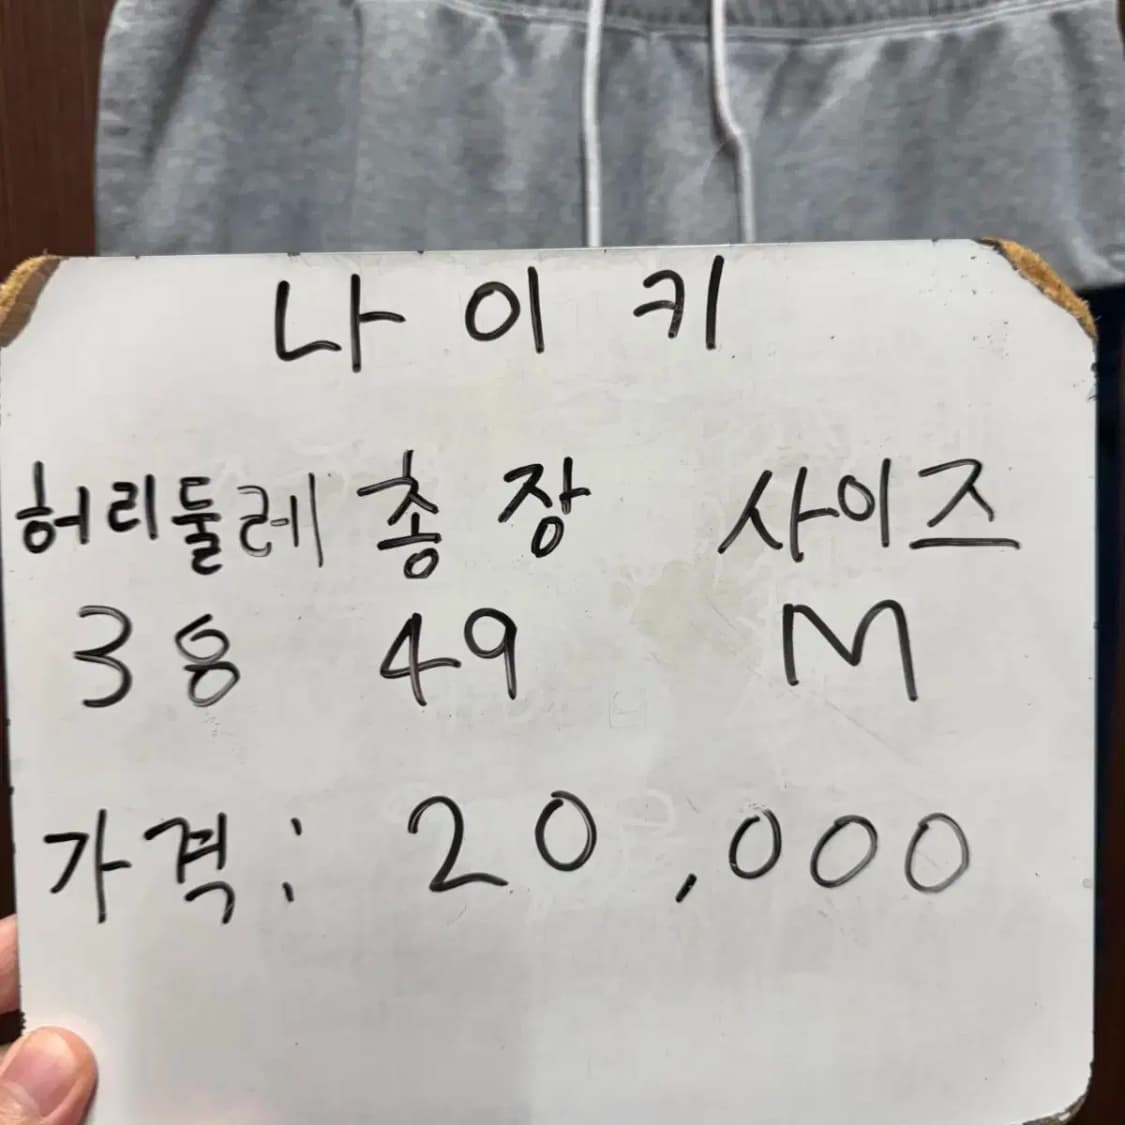 나이키
허리둘레 총장 사이즈
38 49 M
가격: 20,000